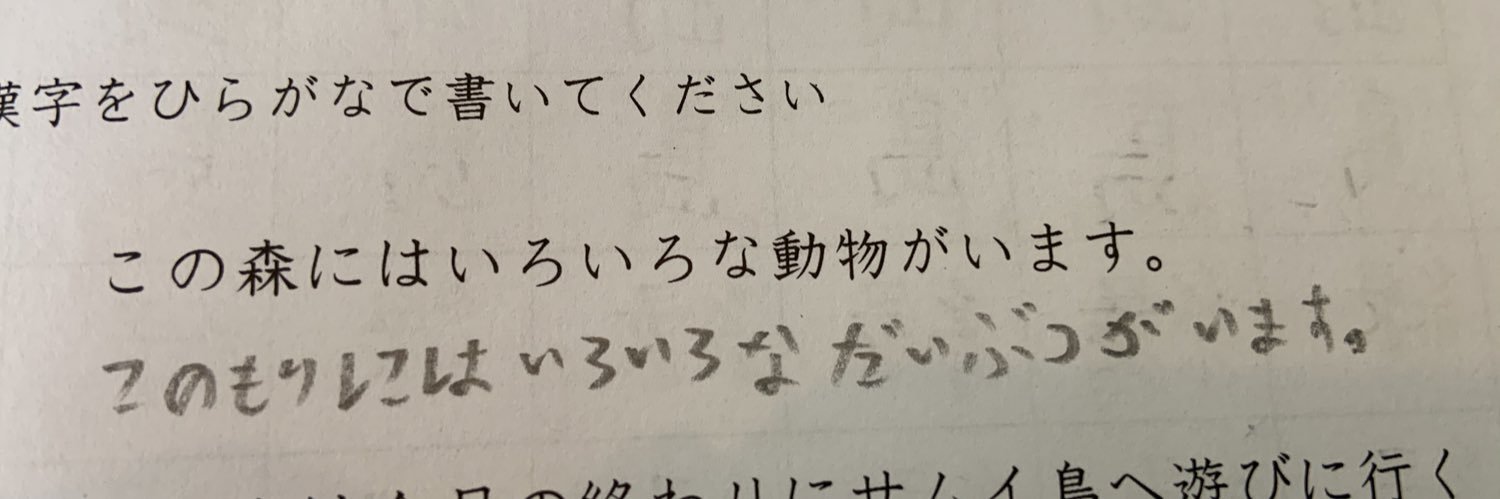 漢字をひらがなで書いてください
この森にはいろいろな動物がいます。
このもりにはいろいろなだいぶつがいます。
の終わりにサムイ島へ遊びに行く